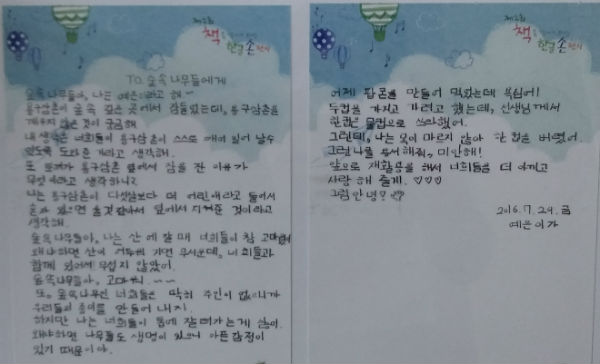 To. 숲속 나무들에게
숲속 나무들아, 나는 예은이라고 해~
동구삼촌이 숲속 깊은 곳에서 잠들었는데, 동구삼촌을
깨우지 않은 것이 궁금해.
내 생각은 너희들이 동구삼촌이 스스로 깨어 일어 날수
있도록 도와준 거라고 생각해.
또 토끼가 동구삼촌 옆에서 잠을 잔 이유가
무엇이라고 생각하니?
나는 동구삼촌이 다섯살보다 더 어린애라고 들어서
혼자 있으면 울것같아서 옆에서 지켜준 것이라고
생각해.
숲속 나무들아, 나는 산에 갈 때 너희들이 참 고마웠어
왜냐하면 산이 어두워 지면 무서운데, 너희들과
함께 있어서 무섭지 않았어.
숲속나무들아, 고마워. ~~
또, 숲속나무인 너희들은 딱히 주인이 없으니까
우리들의 종이를 만들어 내지.
하지만 나는 너희들이 톱에 잘려가는게 싫어.
왜냐하면 나무들도 생명이 있으니 아픈감정이
있기 때문이야.
제2회
책
한글 손 편지
어제 팝콘을 만들어 먹었는데 북침이!
두컵을 가지고 가려고 했는데, 선생님께서
한컵은 물컵으로 쓰라했어.
그런데, 나는 목이 마르지 않아 한 컵을 버렸어.
그런 나를 용서해줘, 미안해!
앞으로 재활용을 해서 너희들을 더 아끼고
사랑 해 줄게. ♡♡♡
그럼 안녕? ♡
2016. 7. 29. 금
예은이가
제2회
책
한글 손 편지